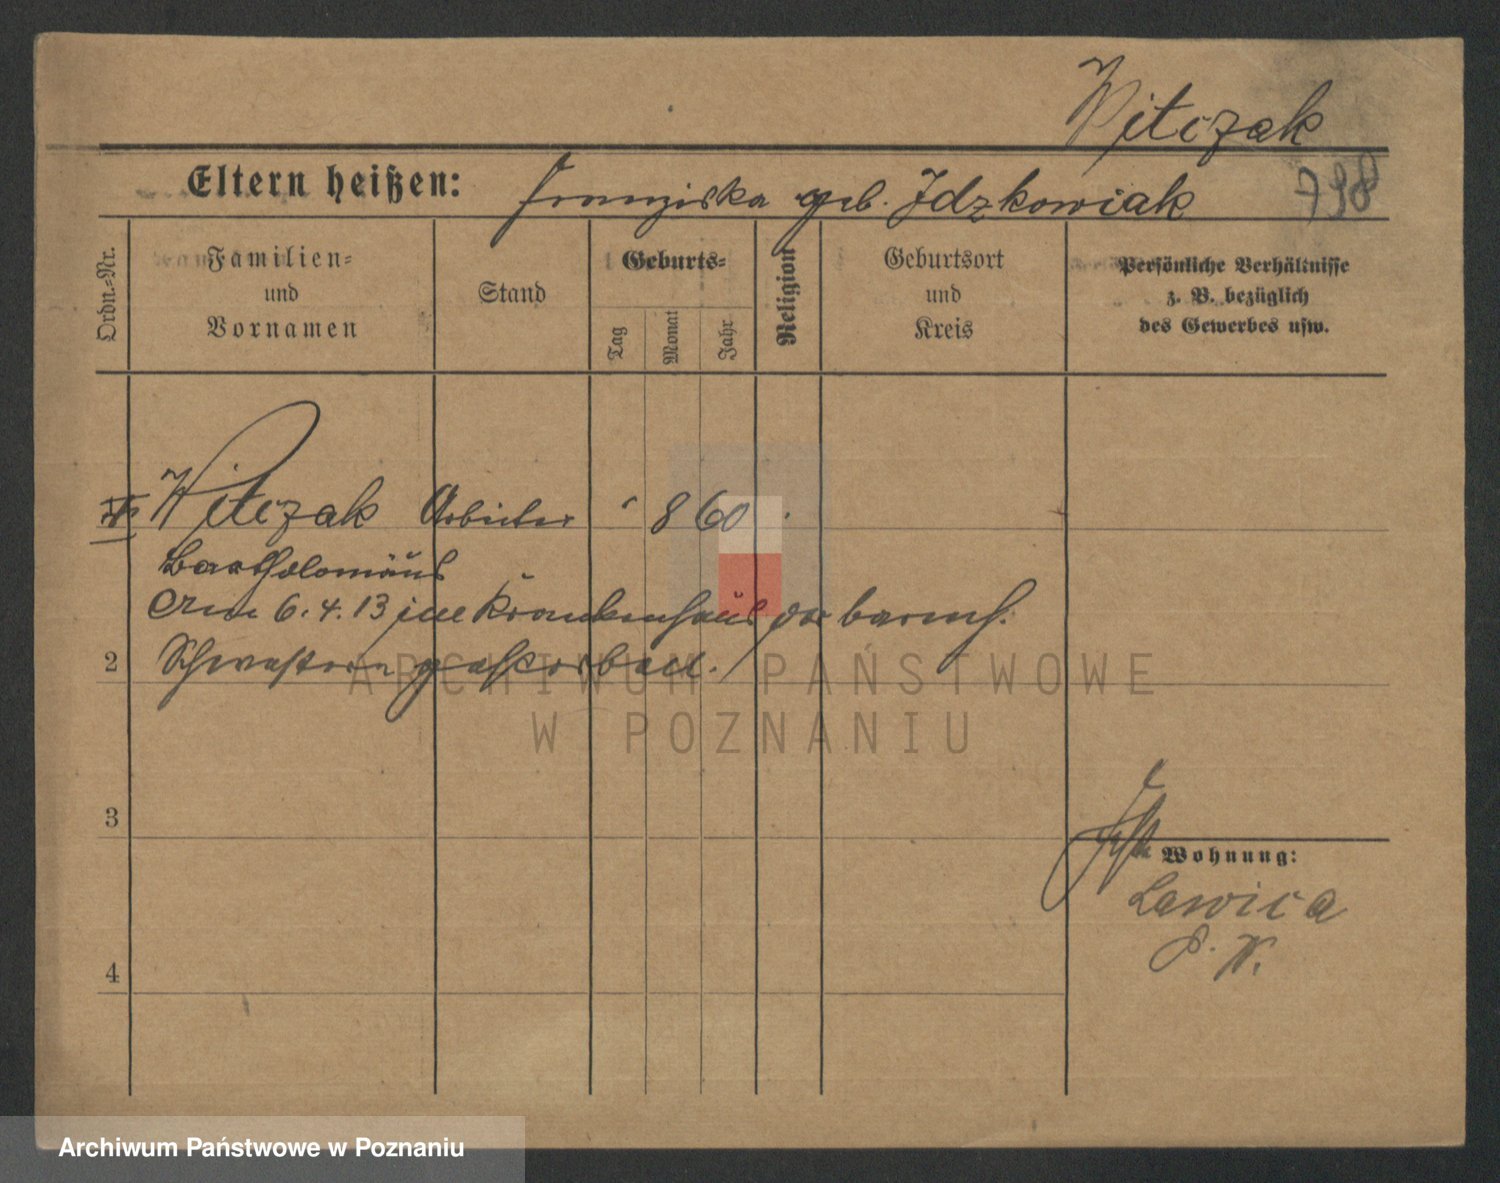 Witczak
Eltern heißen: Franziska geb. Idzkowiak 798
Ordn.-Nr.
Familien-
und
Vornamen
Stand
Geburts-
Tag
Monat
Jahr
Religion
Geburtsort
und
Kreis
Persönliche Verhältnisse
z. B. bezüglich
des Gewerbes usw.
Witczak Arbeiter 8 60
Bartholomäus
Am 6.4.13 im Krankenhaus der barmh.
2 Schwestern gestorben.
ARCHIWUM PAŃSTWOWE
W POZNANIU
3
Wohnung:
Lawica
P. W.
4
Archiwum Państwowe w Poznaniu